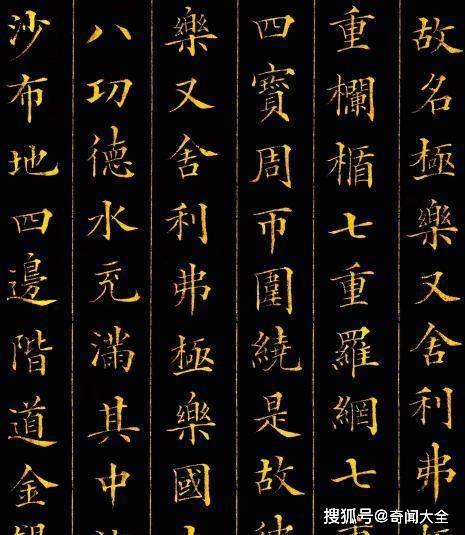 故名極樂又舍利弗
重欄楯七重羅網七
四寶周帀圍繞是故
樂又舍利弗極樂國
八功德水充滿其中
沙布地四邊階道金
搜狐号@奇闻大全